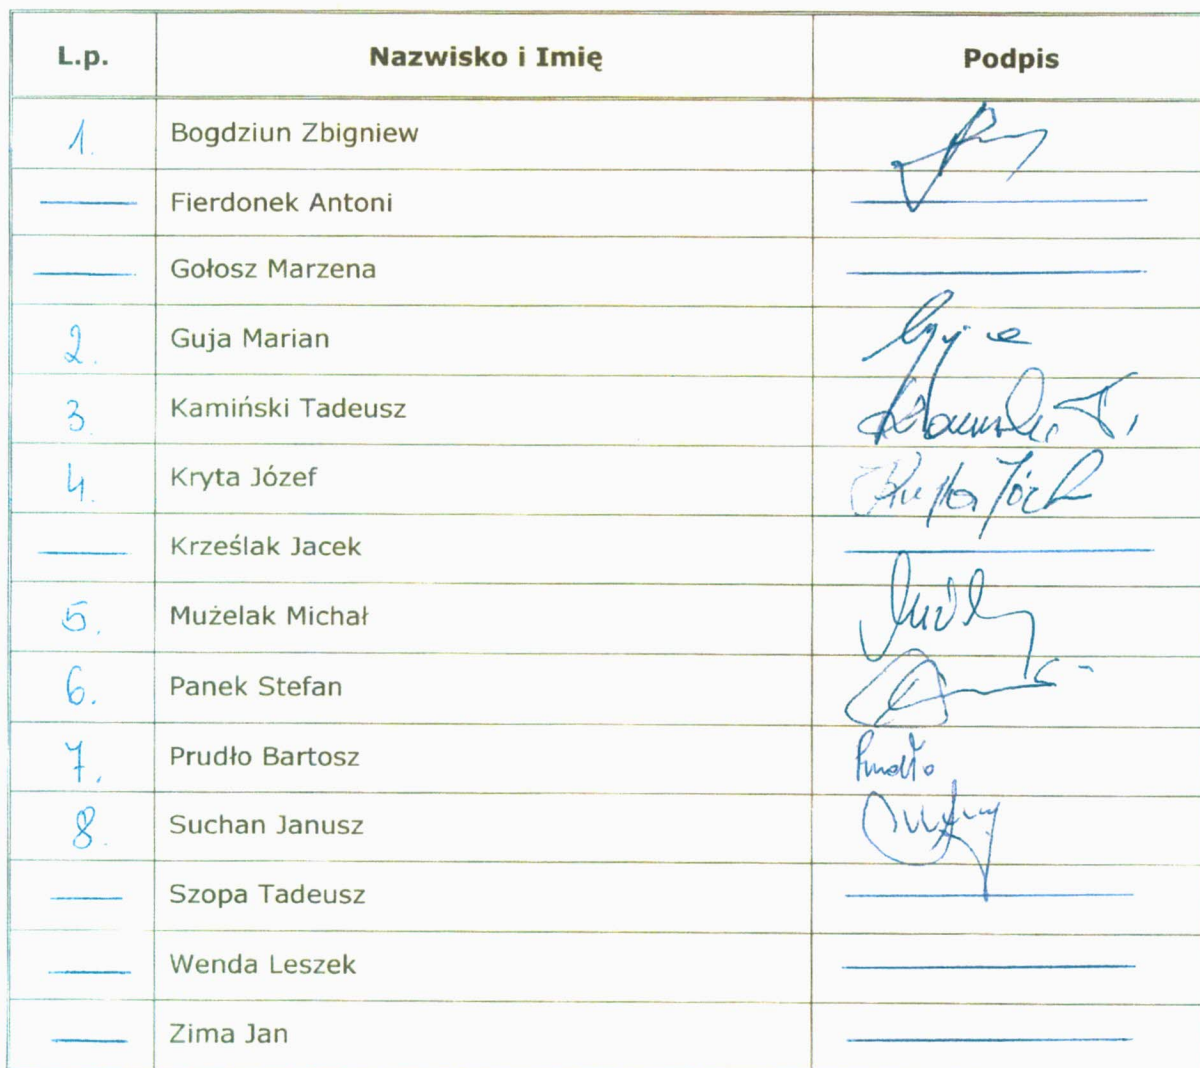 L.p. Nazwisko i Imię Podpis
1. Bogdziun Zbigniew
Fierdonek Antoni
Gołosz Marzena
2. Guja Marian
3. Kamiński Tadeusz
4. Kryta Józef Kryta Józef
Krześlak Jacek
5. Mużelak Michał
6. Panek Stefan
7. Prudło Bartosz Prudło
8. Suchan Janusz
Szopa Tadeusz
Wenda Leszek
Zima Jan